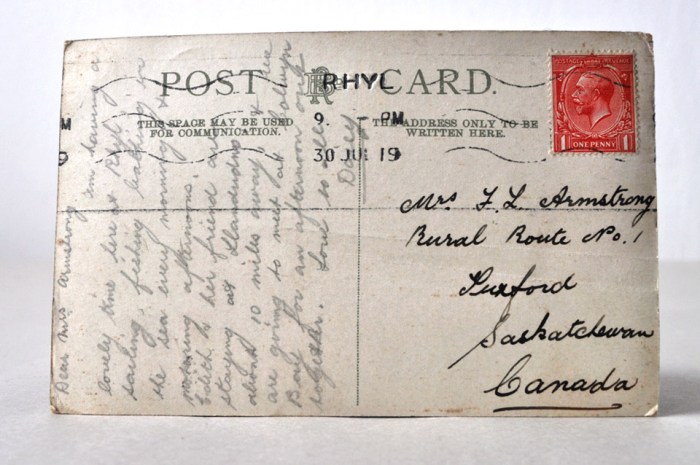 POST CARD.
RHYL
9. - PM
30 JUL 19
THIS SPACE MAY BE USED
FOR COMMUNICATION.
THE ADDRESS ONLY TO BE
WRITTEN HERE.
1 ONE PENNY 1
M
Mrs F. L. Armstrong
Rural Route No. 1
Tuxford
Saskatchewan
Canada
Dear Mrs Armstrong 'Im having a
lovely time here at Rhyl
bathing in
the sea every morning &
afternoons.
Edith & her friend are
staying at Llandudno
about 10 miles away, & we
are going to meet at Colwyn
Bay for an afternoon out
together. Love to all